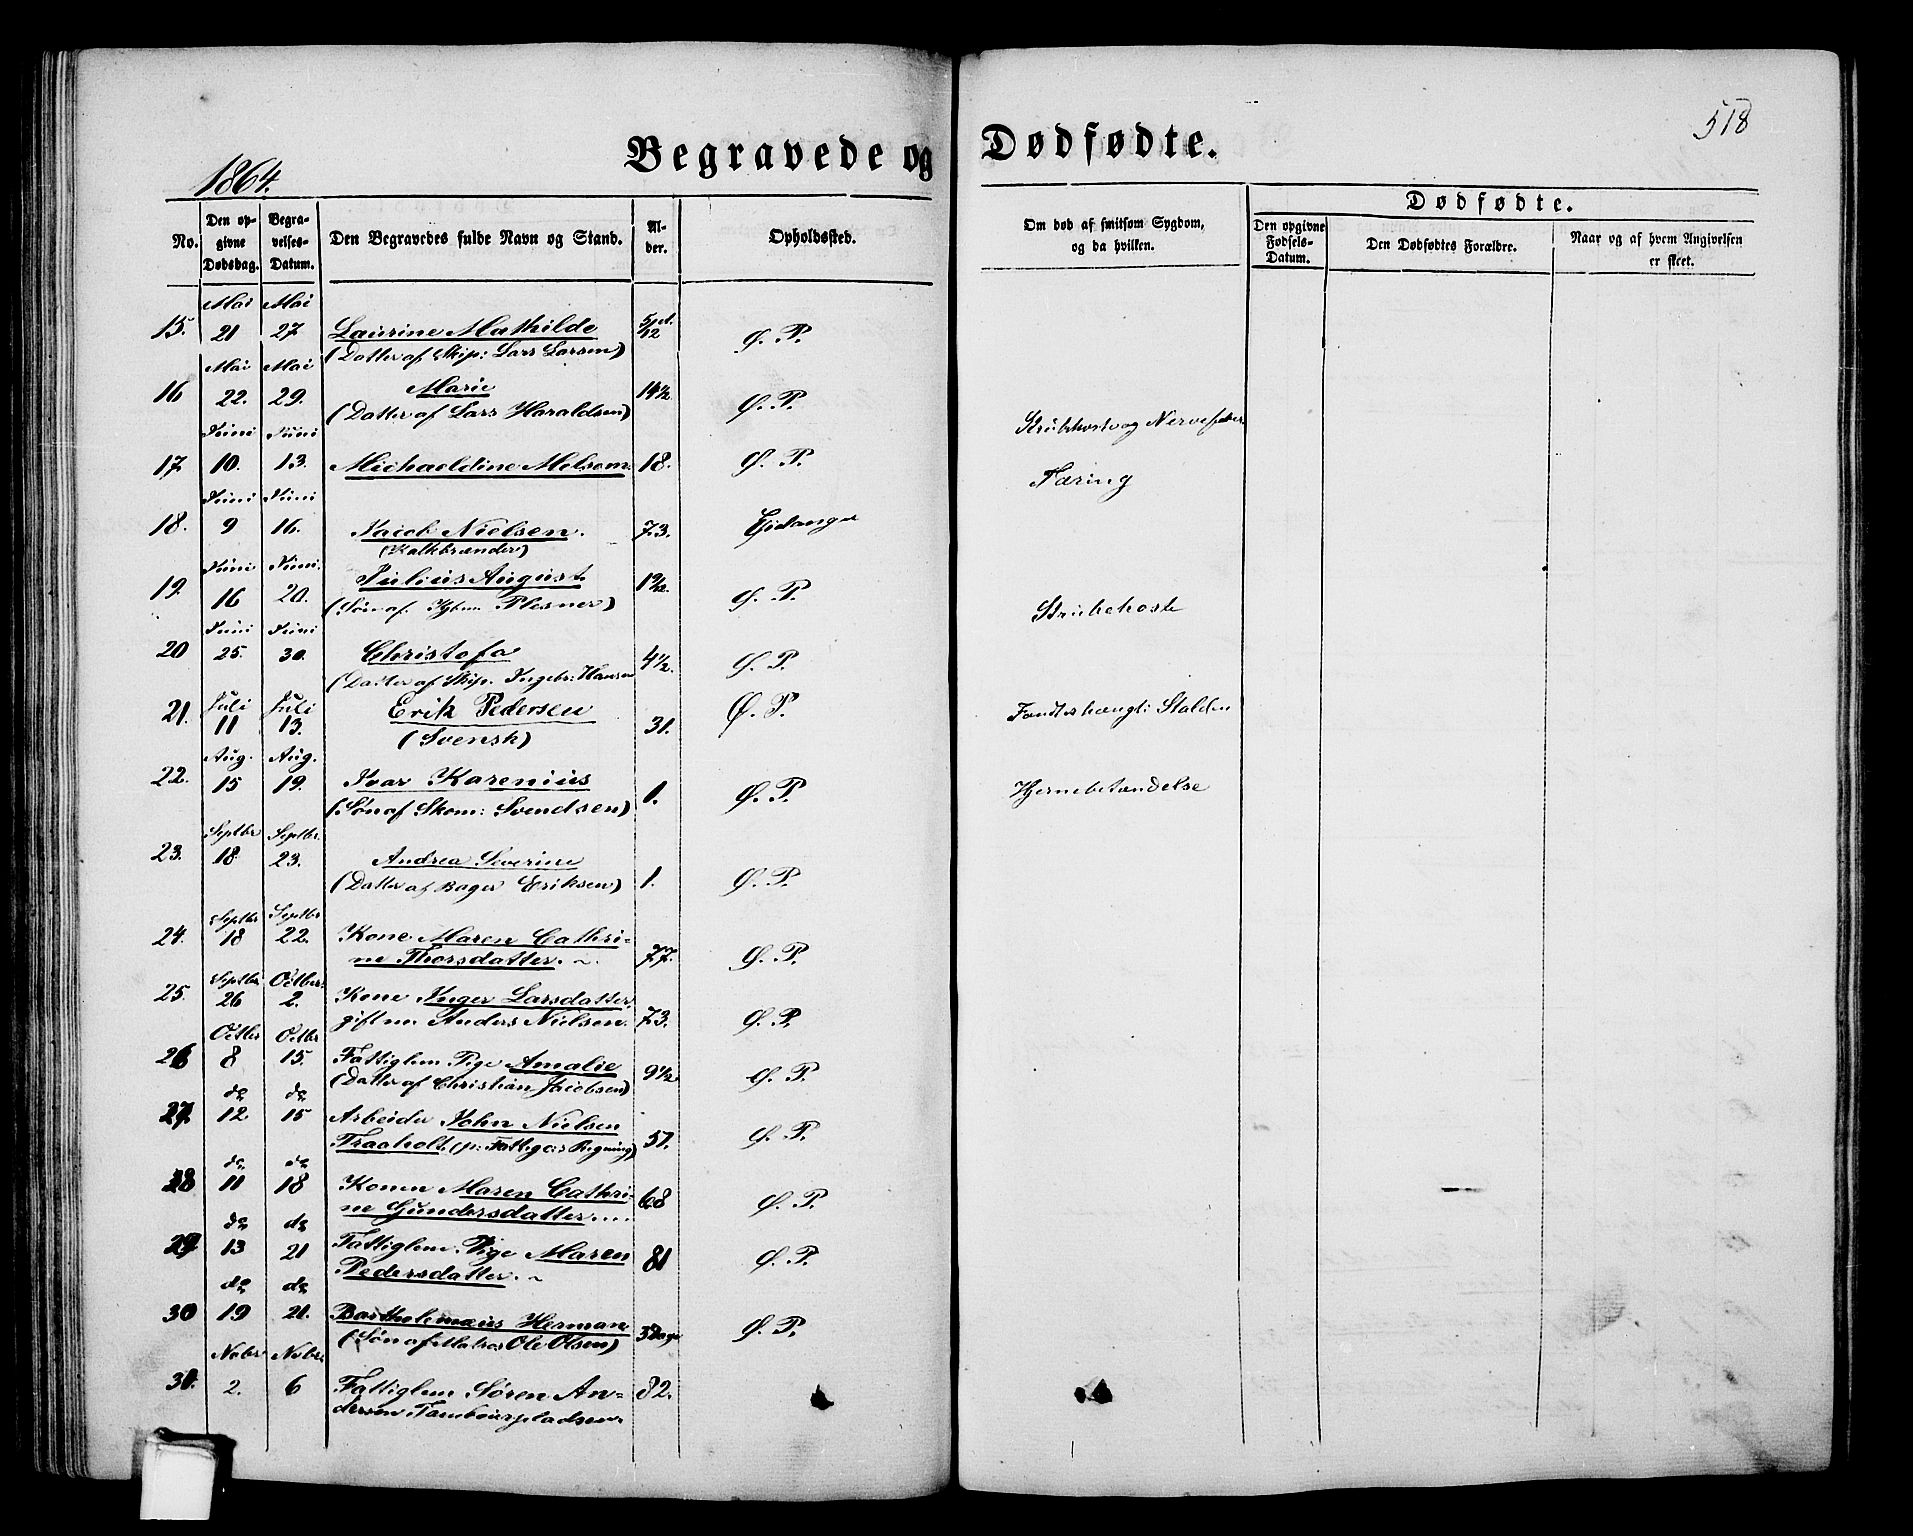 518
Begravede og Dødfødte.
1864.
Dødfødte.
No. Den opgivne Dødsdag. Begravelses-Datum. Den Begravedes fulde Navn og Stand. Alder. Opholdssted. Om død af smitsom Sygdom, og da hvilken. Den opgivne Fødsels-Datum. Den Dødfødtes Forældre. Naar og af hvem Angivelsen er skeet.
Mai Mai
15. 21 27 Laurine Mathilde 5/12 Ø. P.
(Datter af Skip: Lars Larsen)
Mai Mai
16 22. 29. Marie Ø. P.
(Datter af Lars Haraldsen) Strubhoste og Nervefeber
Juni Juni
17 10. 13. Michaeldine Melsom 18. Ø. P. Tæring
Juni Juni
18. 9 16. Jacob Nielsen. 73. Eidanger
(Kalkbrænder)
Juni Juni
19. 16 20. Julius August Ø. P. Strubehoste
(Søn af Plesner)
Juni Juni
20 25. 30. Christofa 4½. Ø. P.
(Datter af Skip. Ingebr: Hansen
Juli Juli
21. 11 13. Erik Pedersen 31. Ø. P. Fandtes hængt i Stalden
(Svensk)
Aug. Aug.
22. 15 19. Ivar Karenius 1. Ø. P. Hjernebetændelse
(Søn af Skom: Svendsen)
Septbr Septbr.
23. 18. 23. Andrea Severine 1. Ø. P.
(Datter af Bager Eriksen)
Septbr Septbr
24. 18 22. Kone Maren Cathri-
ne Thorsdatter. 77. Ø. P.
Septbr Octbr.
25. 26 2. Kone Inger Larsdatter,
gift m. Anders Nielsen. 73. Ø. P.
Octbr Octbr
26 8 15. Fattiglem Pige Amalie 9½ Ø. P.
(Datter af Christian Jacobsen)
do do
27. 12 15 Arbeider John Nielsen
Traaholt. (p: Fattigves Regning) 57. Ø. P.
do do
28 11 18 Konen Maren Cathri-
ne Gundersdatter.... 68 Ø. P.
do do
29. 13 21 Fattiglem Pige Maren
Pedersdatter. 81 Ø. P.
do do
30 19 21. Bartholemæus Herman Ø. P.
(Søn af Matros Ole Olsen) Dage
Nvbr Nvbr.
31. 2. 6 Fattiglem Søren An-
dersen, Tambourpladsen. 82.